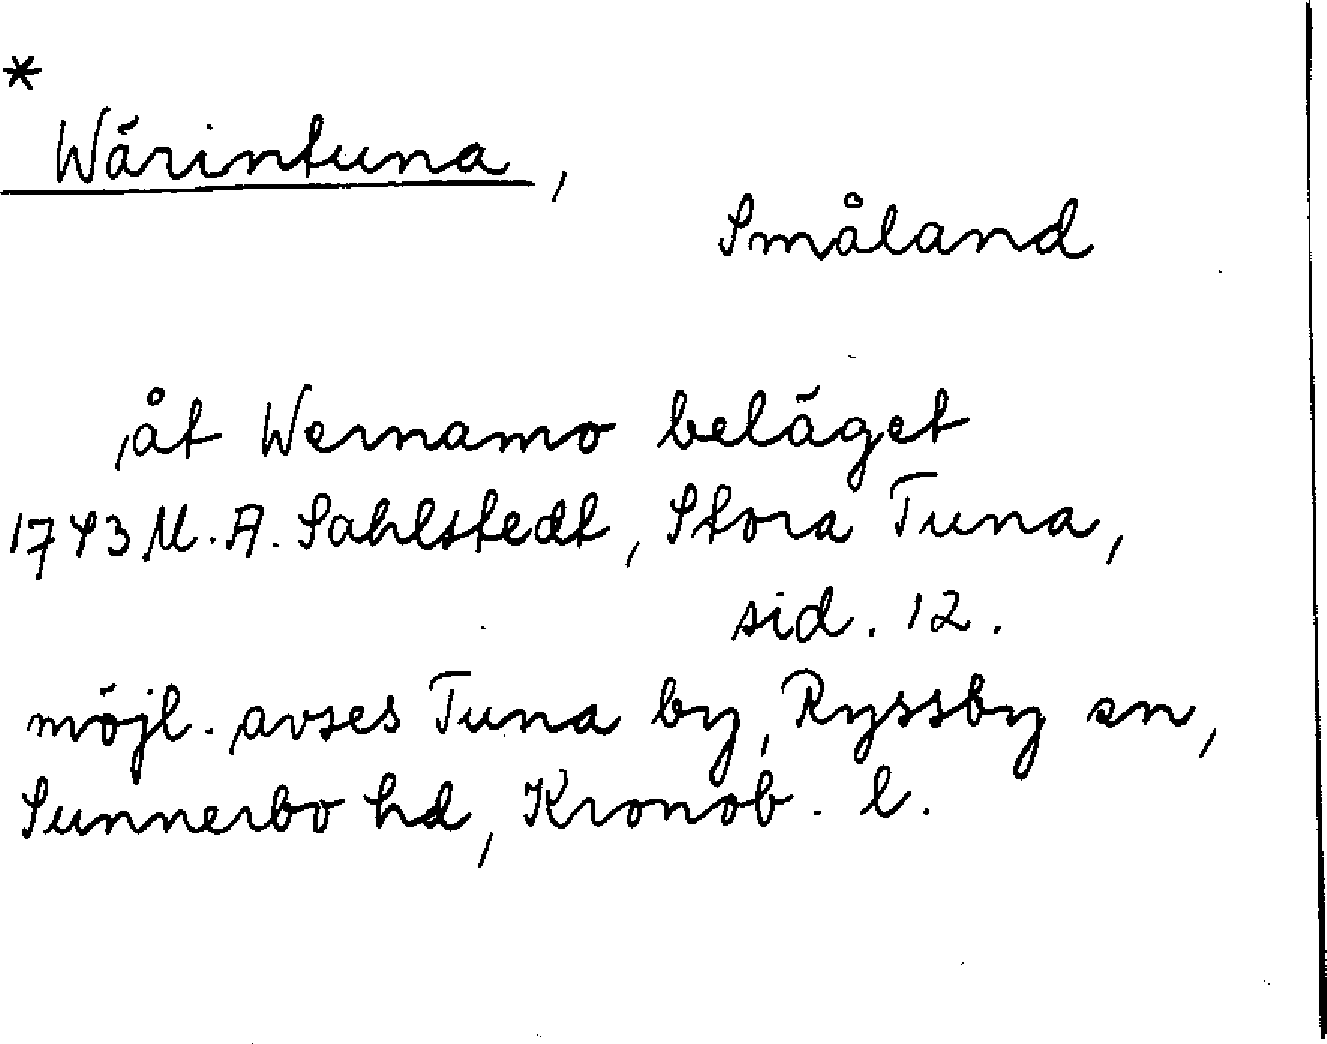 *
Wärintuna,
Småland
åt Wernamo beläget
1743 M. A. Sahlstedt, Stora Tuna,
sid. 12.
möjl. avses Tuna by, Ryssby sn,
Sunnerbo hd, Kronob. l.